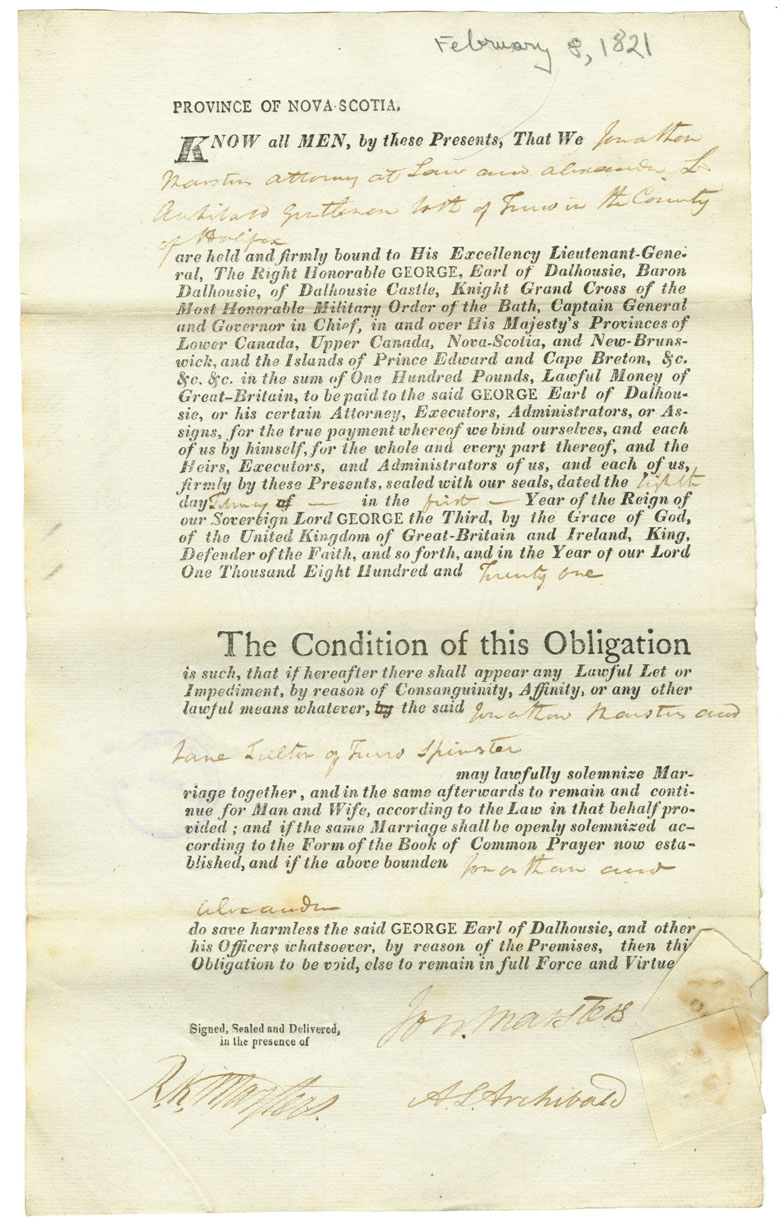 February 8, 1821
PROVINCE OF NOVA-SCOTIA.
KNOW all MEN, by these Presents, That We Jonathan
Marsters attorney at Law and alexander L.
Archibald Gentleman both of Truro in the County
of Halifax
are held and firmly bound to His Excellency Lieutenant-Gene-
ral, The Right Honorable GEORGE, Earl of Dalhousie, Baron
Dalhousie, of Dalhousie Castle, Knight Grand Cross of the
Most Honorable Military Order of the Bath, Captain General
and Governor in Chief, in and over His Majesty's Provinces of
Lower Canada, Upper Canada, Nova-Scotia, and New-Bruns-
wick, and the Islands of Prince Edward and Cape Breton, &c.
&c. &c. in the sum of One Hundred Pounds, Lawful Money of
Great-Britain, to be paid to the said GEORGE Earl of Dalhou-
sie, or his certain Attorney, Executors, Administrators, or As-
signs, for the true payment whereof we bind ourselves, and each
of us by himself, for the whole and every part thereof, and the
Heirs, Executors, and Administrators of us, and each of us,
firmly by these Presents, sealed with our seals, dated the Eighth
day February of — in the first — Year of the Reign of
our Sovereign Lord GEORGE the Third, by the Grace of God,
of the United Kingdom of Great-Britain and Ireland, King,
Defender of the Faith, and so forth, and in the Year of our Lord
One Thousand Eight Hundred and Twenty one
The Condition of this Obligation
is such, that if hereafter there shall appear any Lawful Let or
Impediment, by reason of Consanguinity, Affinity, or any other
lawful means whatever, by the said Jonathan Marsters and
Jane of Truro Spinster
may lawfully solemnize Mar-
riage together, and in the same afterwards to remain and conti-
nue for Man and Wife, according to the Law in that behalf pro-
vided ; and if the same Marriage shall be openly solemnized ac-
cording to the Form of the Book of Common Prayer now esta-
blished, and if the above bounden Jonathan and
Alexander
do save harmless the said GEORGE Earl of Dalhousie, and other
his Officers whatsoever, by reason of the Premises, then thi
Obligation to be void, else to remain in full Force and Virtue
Signed, Sealed and Delivered,
in the presence of
Jon. Marsters
R. K. Marsters.
A L Archibald